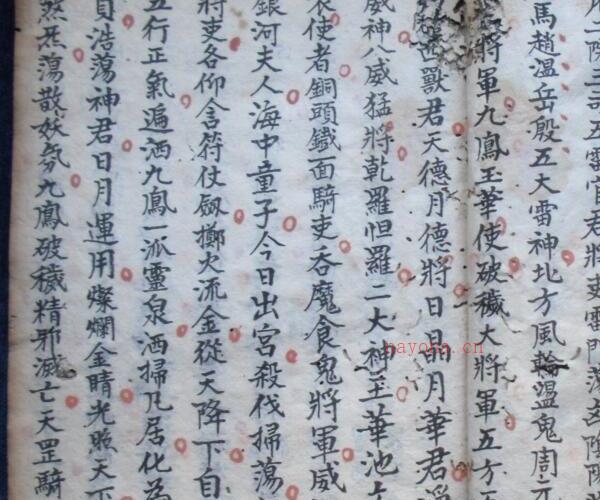 二院三司五雷官君將吏雷門
馬趙溫岳殷五大雷神北方風輪溫鬼周元
將軍九鳳玉華使破穢大將軍五方
獸君天德月德將日晶月華君將
威神八威猛將乾羅怛羅二大神玉華池
衣使者銅頭鐵面騎吏吞魔食鬼將軍威
銀河夫人海中童子今日出宮殺伐掃蕩
將吏各仰含符仗劔擲火流金從天降下自
五行正氣遍洒九鳳一派靈泉洒掃凡居化為
貞浩蕩神君日月運用燦爛金睛光照天下
煞炁蕩散妖氛九鳳破穢精邪滅亡天罡騎
nayoha.cn